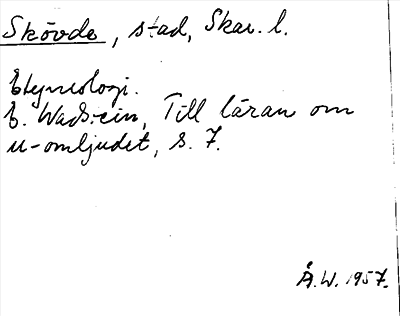 Skövde, stad, Skar. l.
Etymologi.
E. Wadstein, Till läran om
u-omljudet, s. 7.
Å.W. 1957.